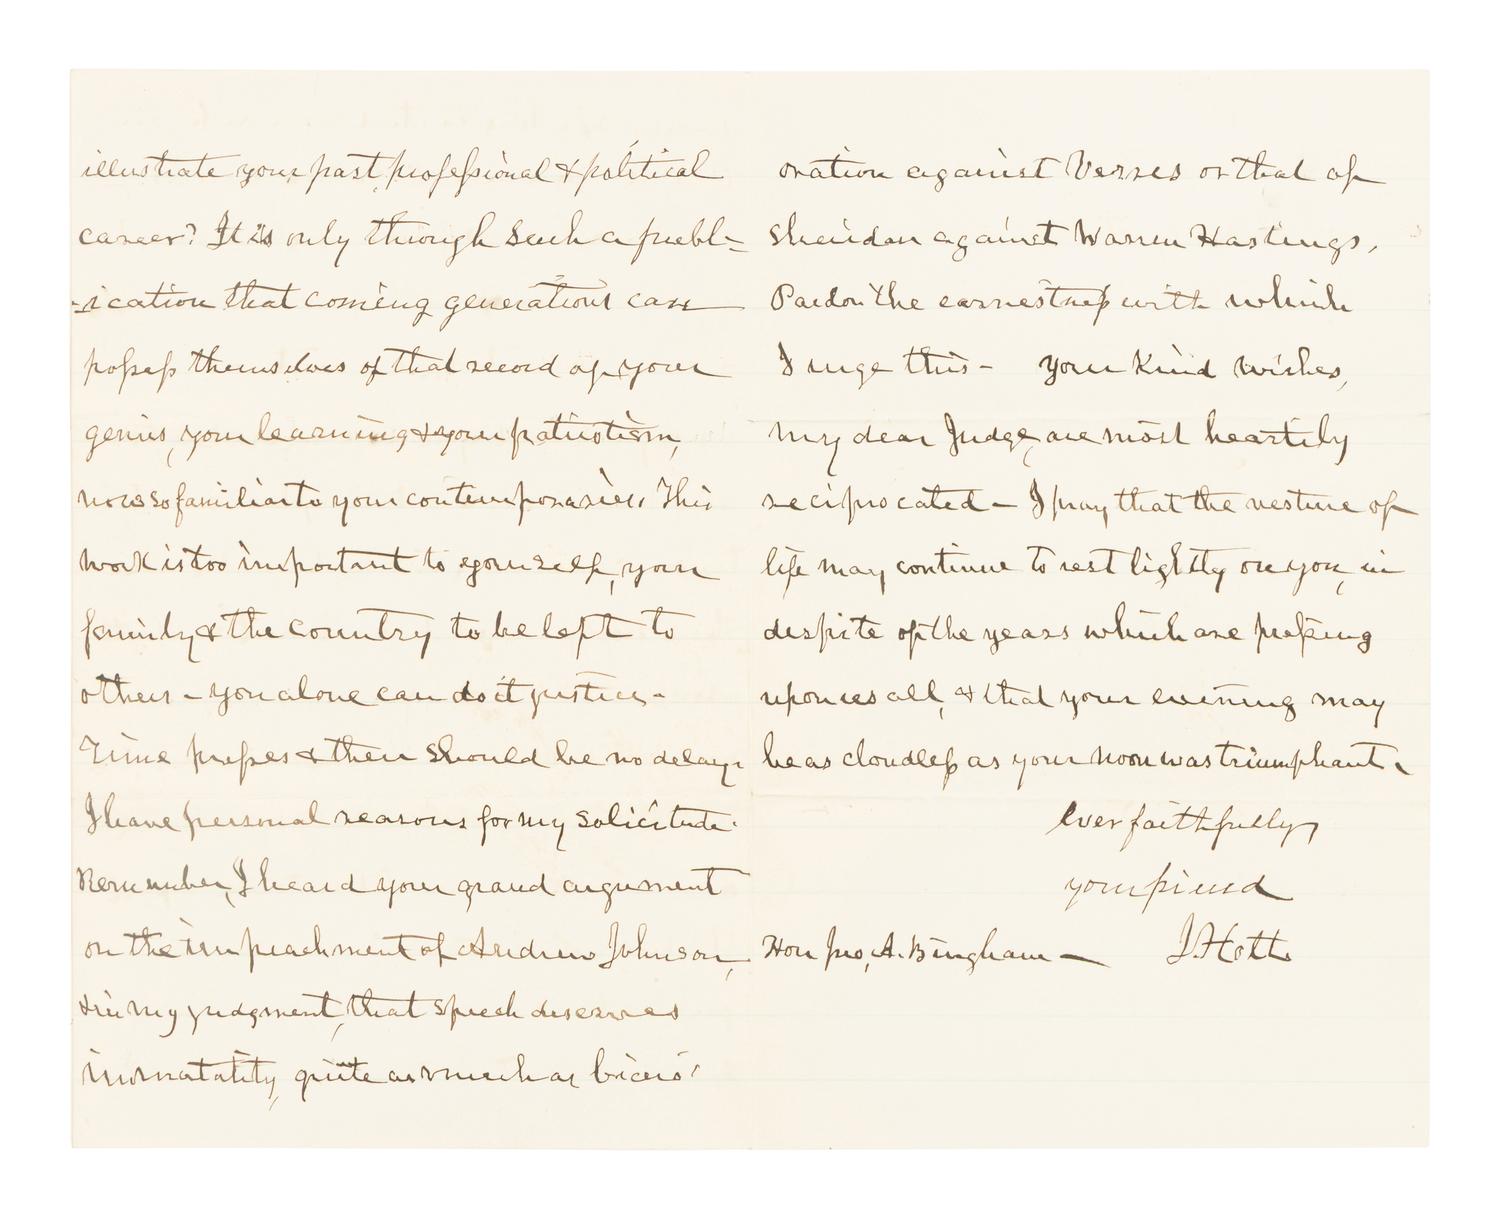 illustrate your past, professional & political
career? It is only through such a publ=
=ication that coming generations can
possess themselves of that record of your
genius, your learning & your patriotism,
now so familiar to your contemporaries. This
work is too important to yourself, your
family & the country to be left to
others – you alone can do it justice –
Time presses & there should be no delay.
I have personal reasons for my solicitude.
Remember, I heard your grand argument
on the impeachment of Andrew Johnson,
& in my judgment, that speech deserves
immortality, quite as much as Cicero's
oration against Verres or that of
Sheridan against Warren Hastings,
Pardon the earnestness with which
I urge this – your kind wishes,
my dear Judge, are most heartily
reciprocated – I pray that the vesture of
life may continue to rest lightly on you, in
despite of the years which are pressing
upon us all, & that your evening may
be as cloudless as your noon was triumphant.
Ever faithfully
your friend
Hon Jno, A. Bingham – J. Holt